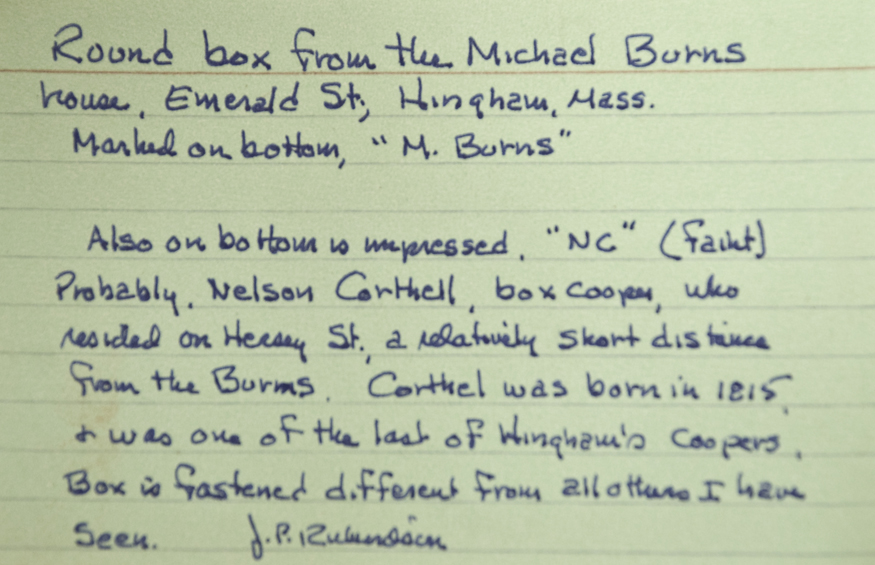 Round box from the Michael Burns
house, Emerald St., Hingham, Mass.
Marked on bottom, "M. Burns"
Also on bottom is impressed, "NC" (faint)
Probably, Nelson Corthell, box cooper, who
resided on Hersey St., a relatively short distance
from the Burns. Corthel was born in 1815,
& was one of the last of Hingham's Coopers.
Box is fastened different from all others I have
seen. J.P.